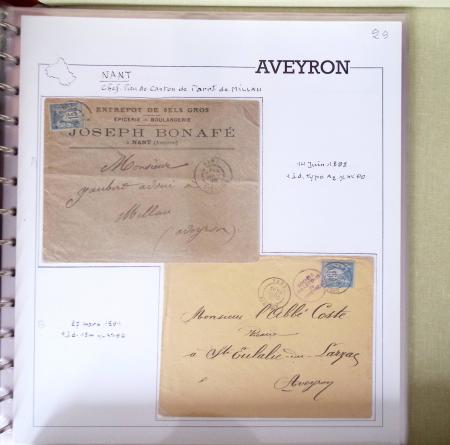 29
AVEYRON
NANT
Chef lieu de Canton de l'arrt de MILLAU
ENTREPÔT DE SELS GROS
ÉPICERIE — BOULANGERIE
JOSEPH BONAFÉ
à NANT (Aveyron)
Monsieur
gaubert avoué à
Millau
(aveyron)
14 Juin 1898
t.à.d. type
Monsieur l'Abbé Coste
Vicaire
à Ste Eulalie du Larzac
Aveyron
27 mars